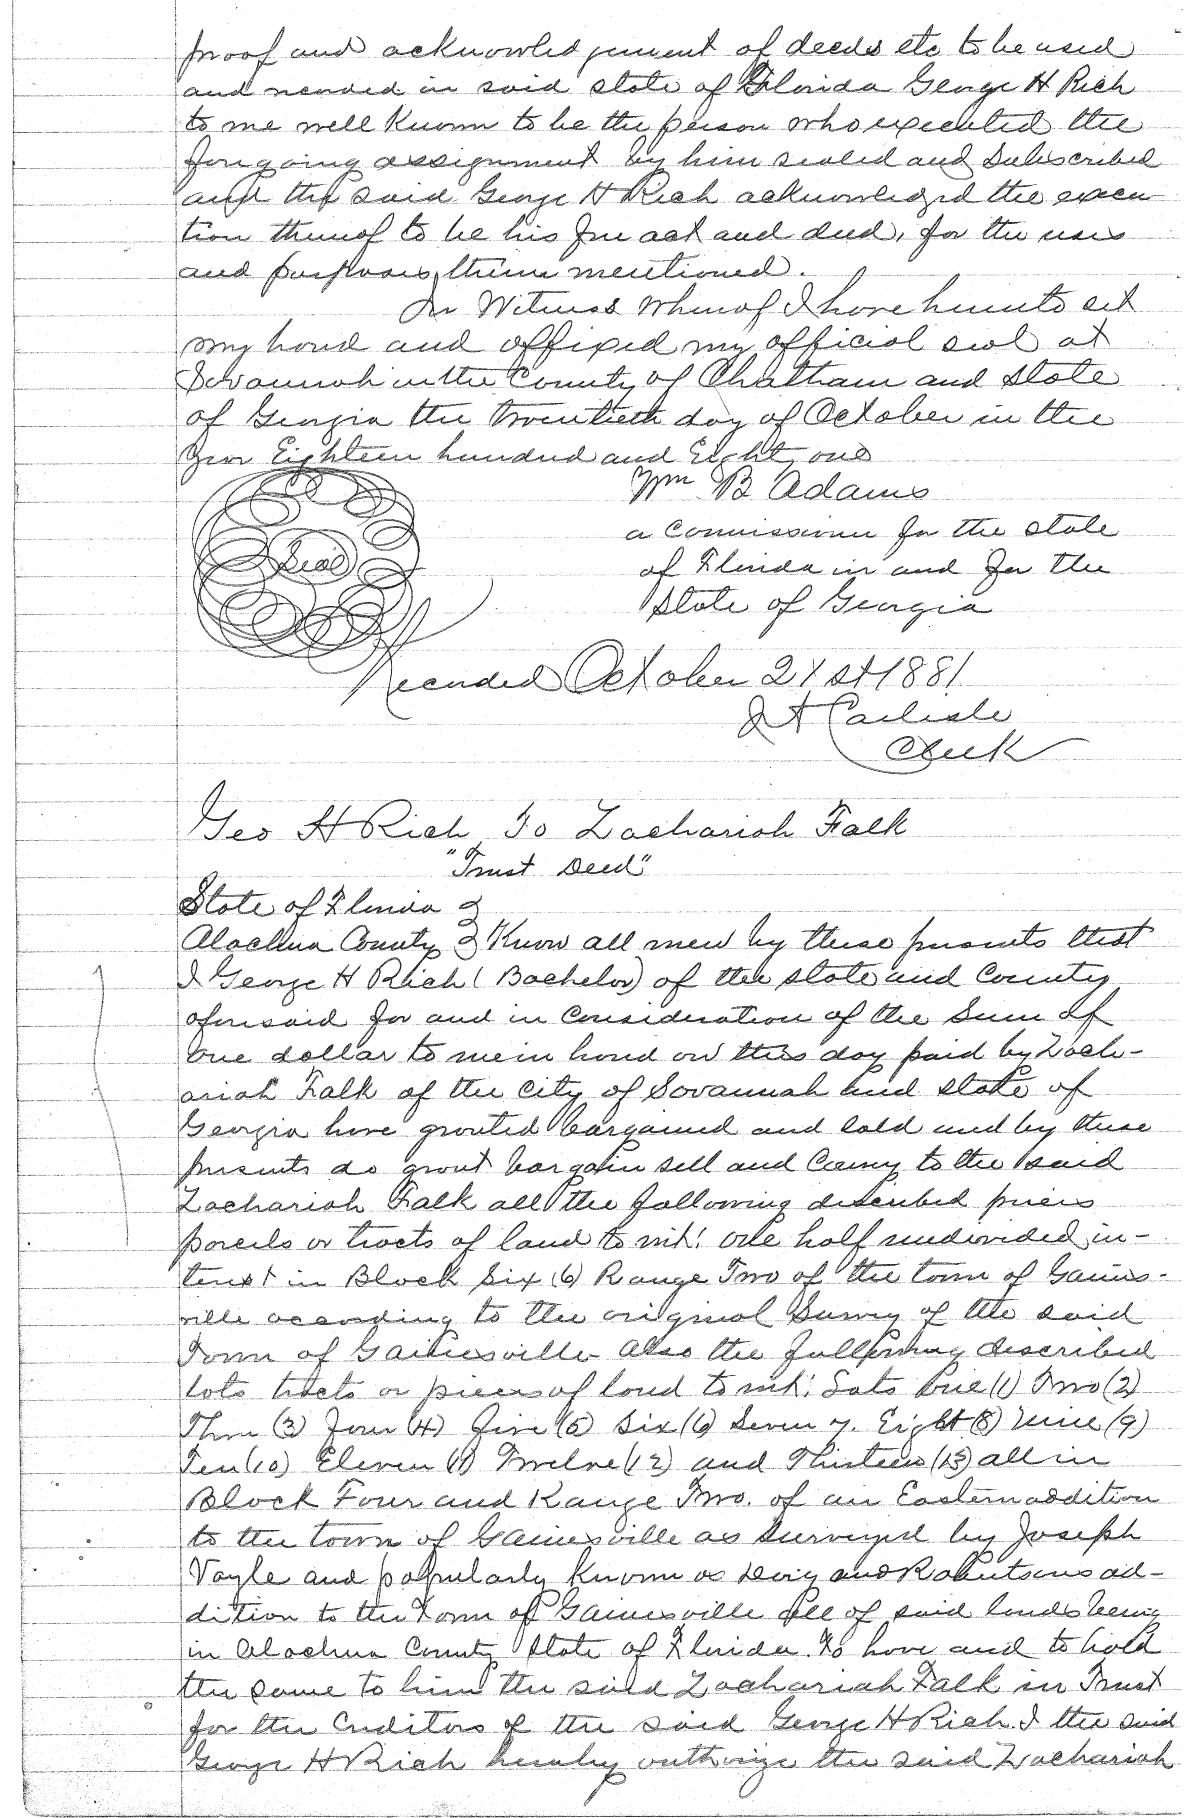 proof and acknowledgement of deeds etc to be used
and needed in said state of Florida George H Rich
to me well known to be the person who executed the
foregoing assignment by him sealed and subscribed
and the said George H Rich acknowledged the execu
tion thereof to be his free act and deed, for the uses
and purposes therein mentioned.
In Witness whereof I have hereunto set
my hand and affixed my official seal at
Savannah in the County of Chatham and State
of Georgia the twentieth day of October in the
year Eighteen hundred and Eighty one
Wm B Adams
Seal
a commissioner for the state
of Florida in and for the
State of Georgia
Recorded October 21st 1881
J A Carlisle
Clerk
Geo H Rich To Zachariah Falk
"Trust Deed"
State of Florida }
Alachua County } Know all men by these presents that
I George H Rich (Bachelor) of the state and County
aforesaid for and in consideration of the Sum of
one dollar to me in hand on this day paid by Zach-
ariah Falk of the city of Savannah and state of
Georgia have granted bargained and sold and by these
presents do grant bargain sell and Convey to the said
Zachariah Falk all the following described pieces
parcels or tracts of land to wit: one half undivided in-
terest in Block Six (6) Range Two of the town of Gaines-
ville according to the original Survey of the said
Town of Gainesville Also the following described
lots tracts or pieces of land to wit: Lots One (1) Two (2)
Three (3) Four (4) Five (5) Six (6) Seven 7. Eight (8) Nine (9)
Ten (10) Eleven (11) Twelve (12) and Thirteen (13) all in
Block Four and Range Two. of an Eastern addition
to the town of Gainesville as surveyed by Joseph
Vogle and popularly Known as Devig and Robertsons ad-
dition to the Town of Gainesville All of said lands being
in Alachua County State of Florida. To have and to hold
the same to him the said Zachariah Falk in Trust
for the Creditors of the said George H Rich. I the said
George H Rich hereby authorize the said Zachariah